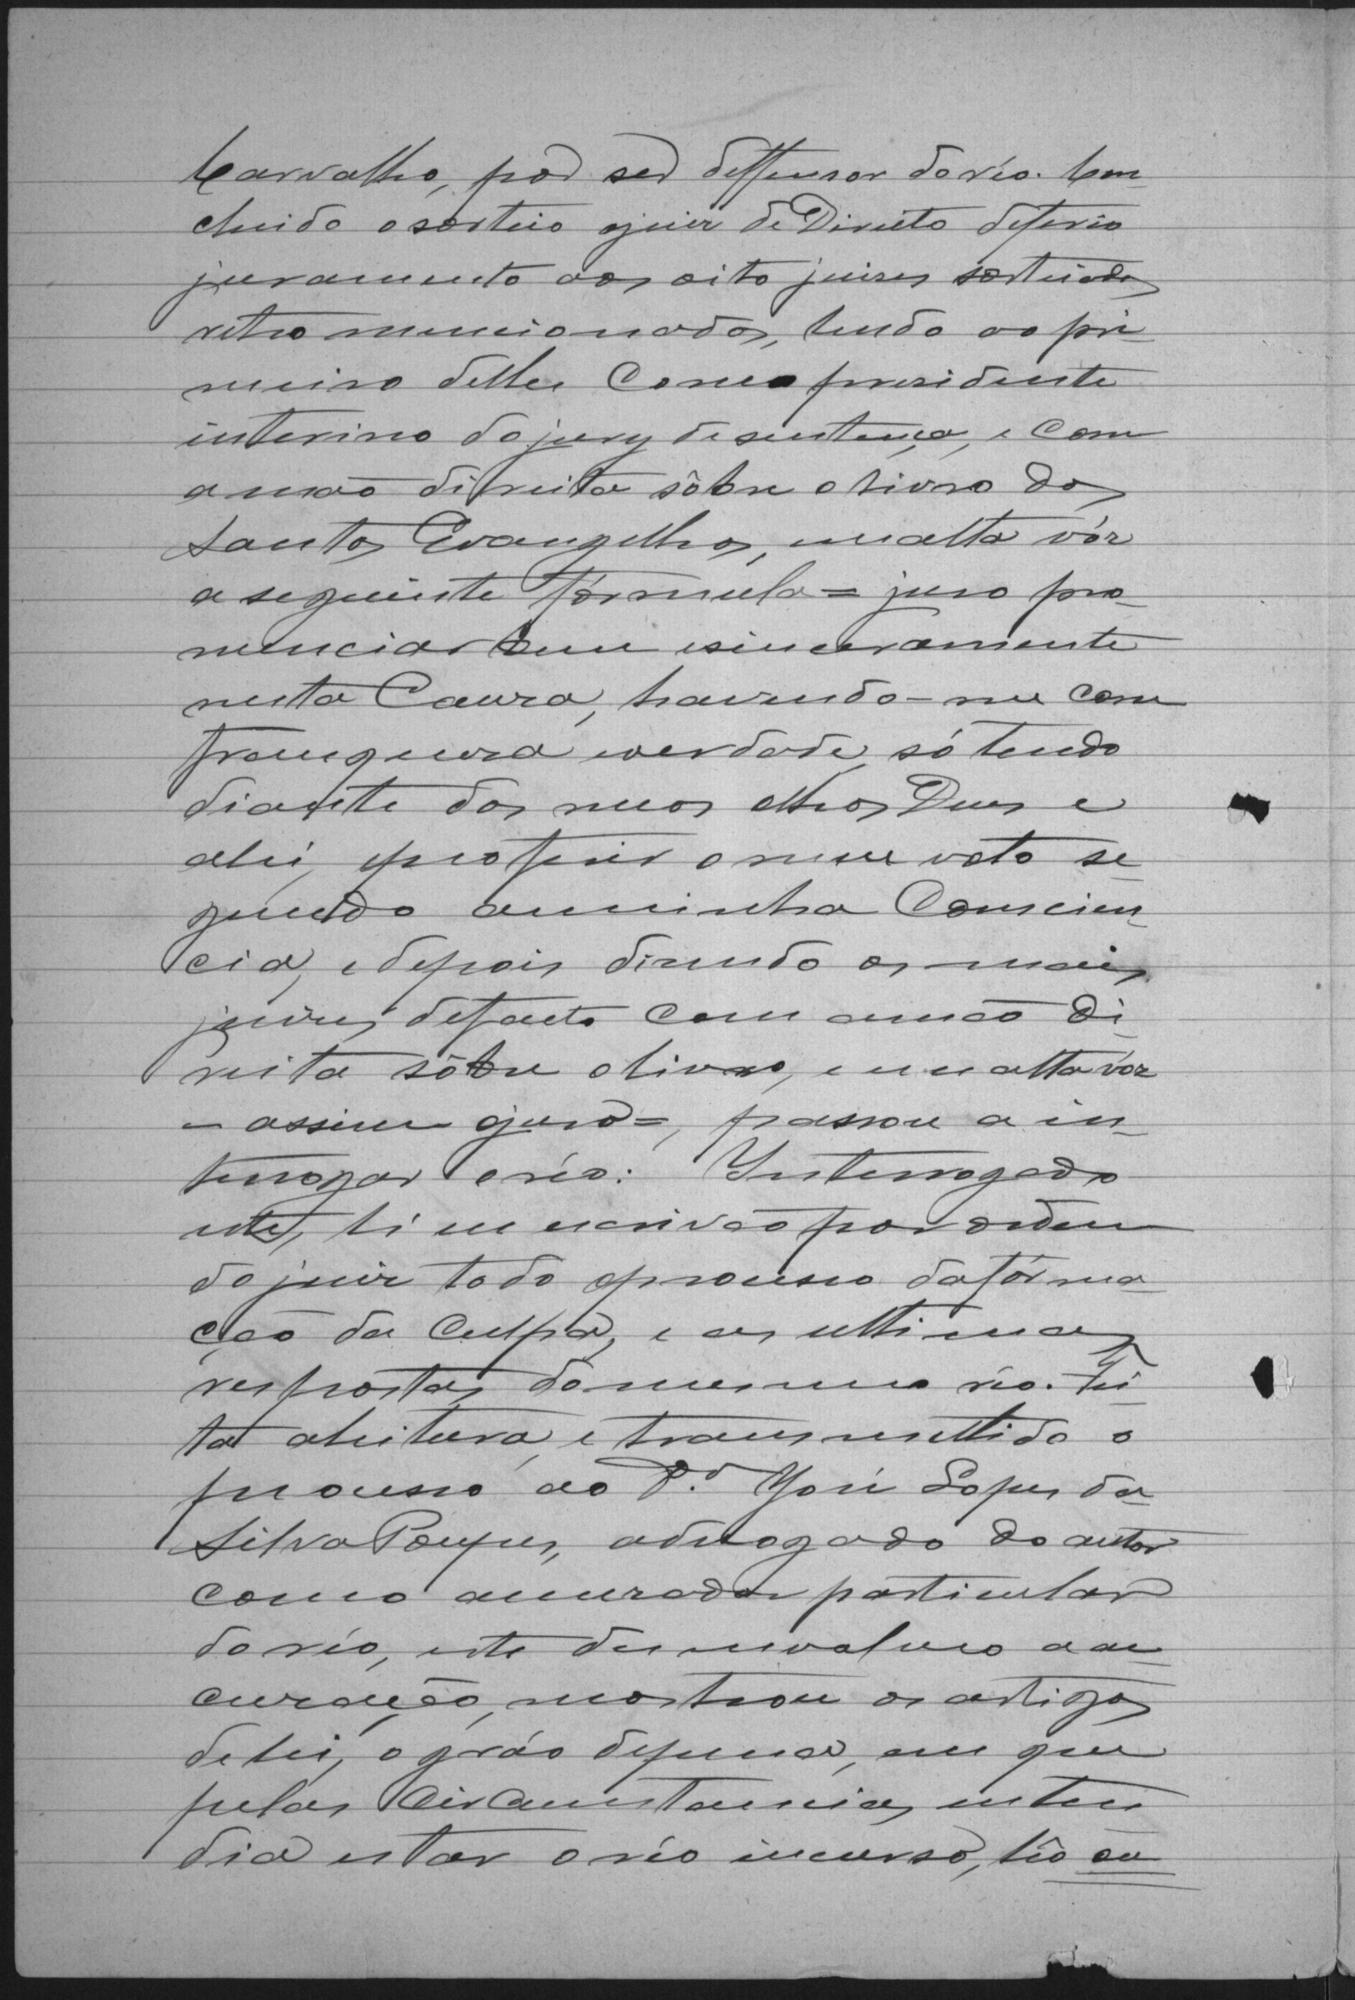 Carvalho, por ser deffensor do réo. Con-
cluido o sorteio o juiz de Direito deferio
juramento aos oito juizes sorteados
retro mencionados, lendo ao pri-
meiro delles como presidente
interino do jury de sentença, e com
a mão direita sôbre o livro dos
Santos Evangelhos, em alta vóz
a seguinte fórmula = juro pro-
nunciar bem e sinceramente
nesta Causa, havendo-me com
franqueza e verdade, só tendo
diante dos meos olhos Deus e
a lei, e proferir o meu voto se-
gundo a minha Conscien-
cia, e depois dizendo os mais
juizes de facto com a mão di-
reita sôbre o livro, e em alta vóz
= assim o juro =, passou a in-
terrogar o réo: Interrogado
este, li eu escrivão por ordem
do juiz todo o processo da fórma-
ção da culpa, e as ultimas
respostas do mesmo réo. Fei-
ta a leitura, e transmettido o
processo ao Dr. José Lopes da
Silva, advogado do autor
como accusador particular
do réo, este desenvolveo a ac-
cusação, mostrou os artigos
de lei, o gráo de pena, em que
pelas circumstancias enten-
dia estar o réo incurso, lêo ou